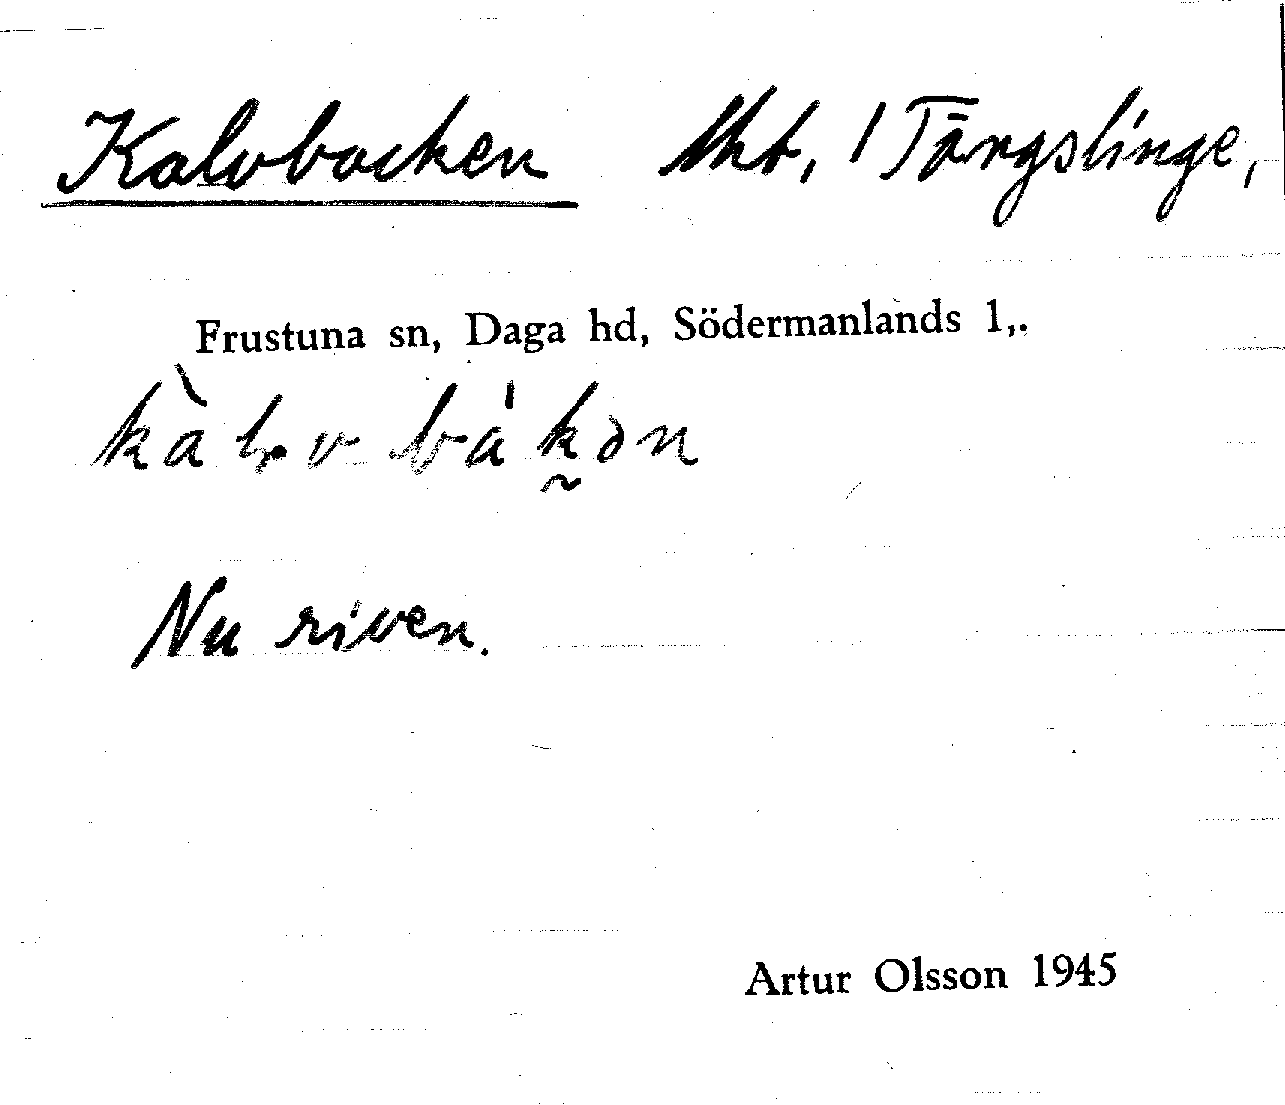 Kalvbacken lht, 1 Tängslinge,
Frustuna sn, Daga hd, Södermanlands l,.
Nu riven.
Artur Olsson 1945